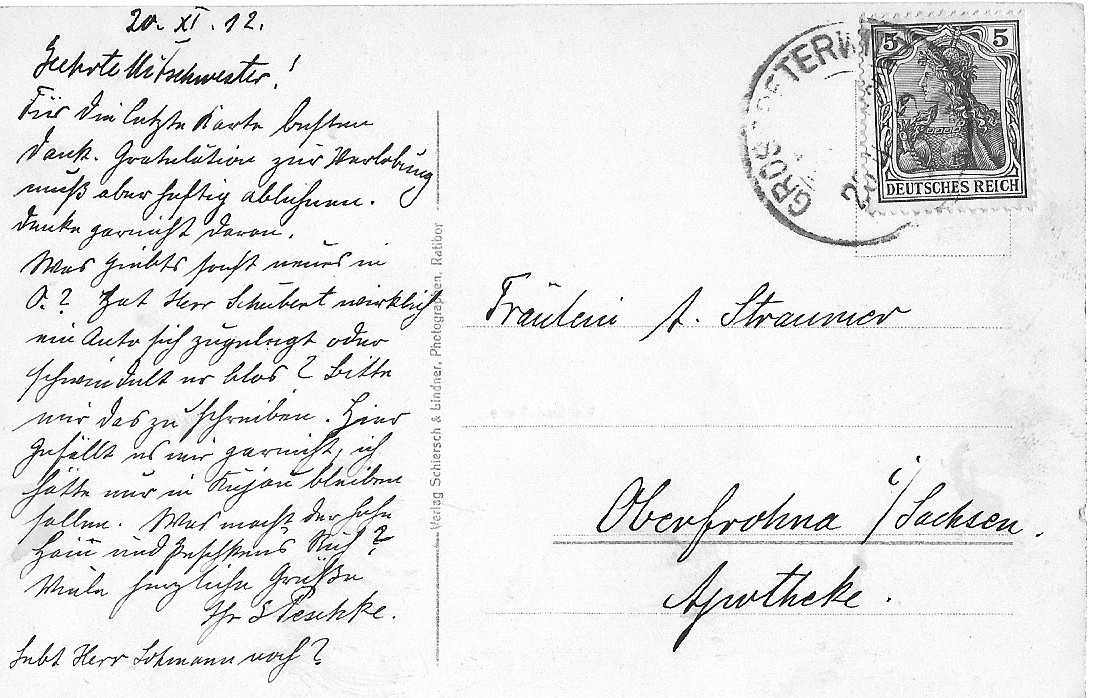 20. XI. 12.
Geehrte Mitschwester!
Für die letzte Karte besten
Dank. Gratulation zur Verlobung
muß aber heftig ablehnen.
Denke garnicht daran.
Was giebts sonst neues in
O.? Hat Herr Schubert wirklich
ein Auto sich zugelegt oder
schwindelt er blos? Bitte
mir das zu schreiben. Hier
gefällt es mir garnicht, ich
hätte nur in Kujau bleiben
sollen. Was macht der
und Peschkens
Viele herzliche Grüße
Ihr E Peschke.
Lebt Herr Lohmann noch?
Verlag Schiersch & Lindner, Photographen, Ratibor
GROSS PETERW
5 5
DEUTSCHES REICH
Fräulein A. Straumer
Oberfrohna i/Sachsen.
Apotheke.